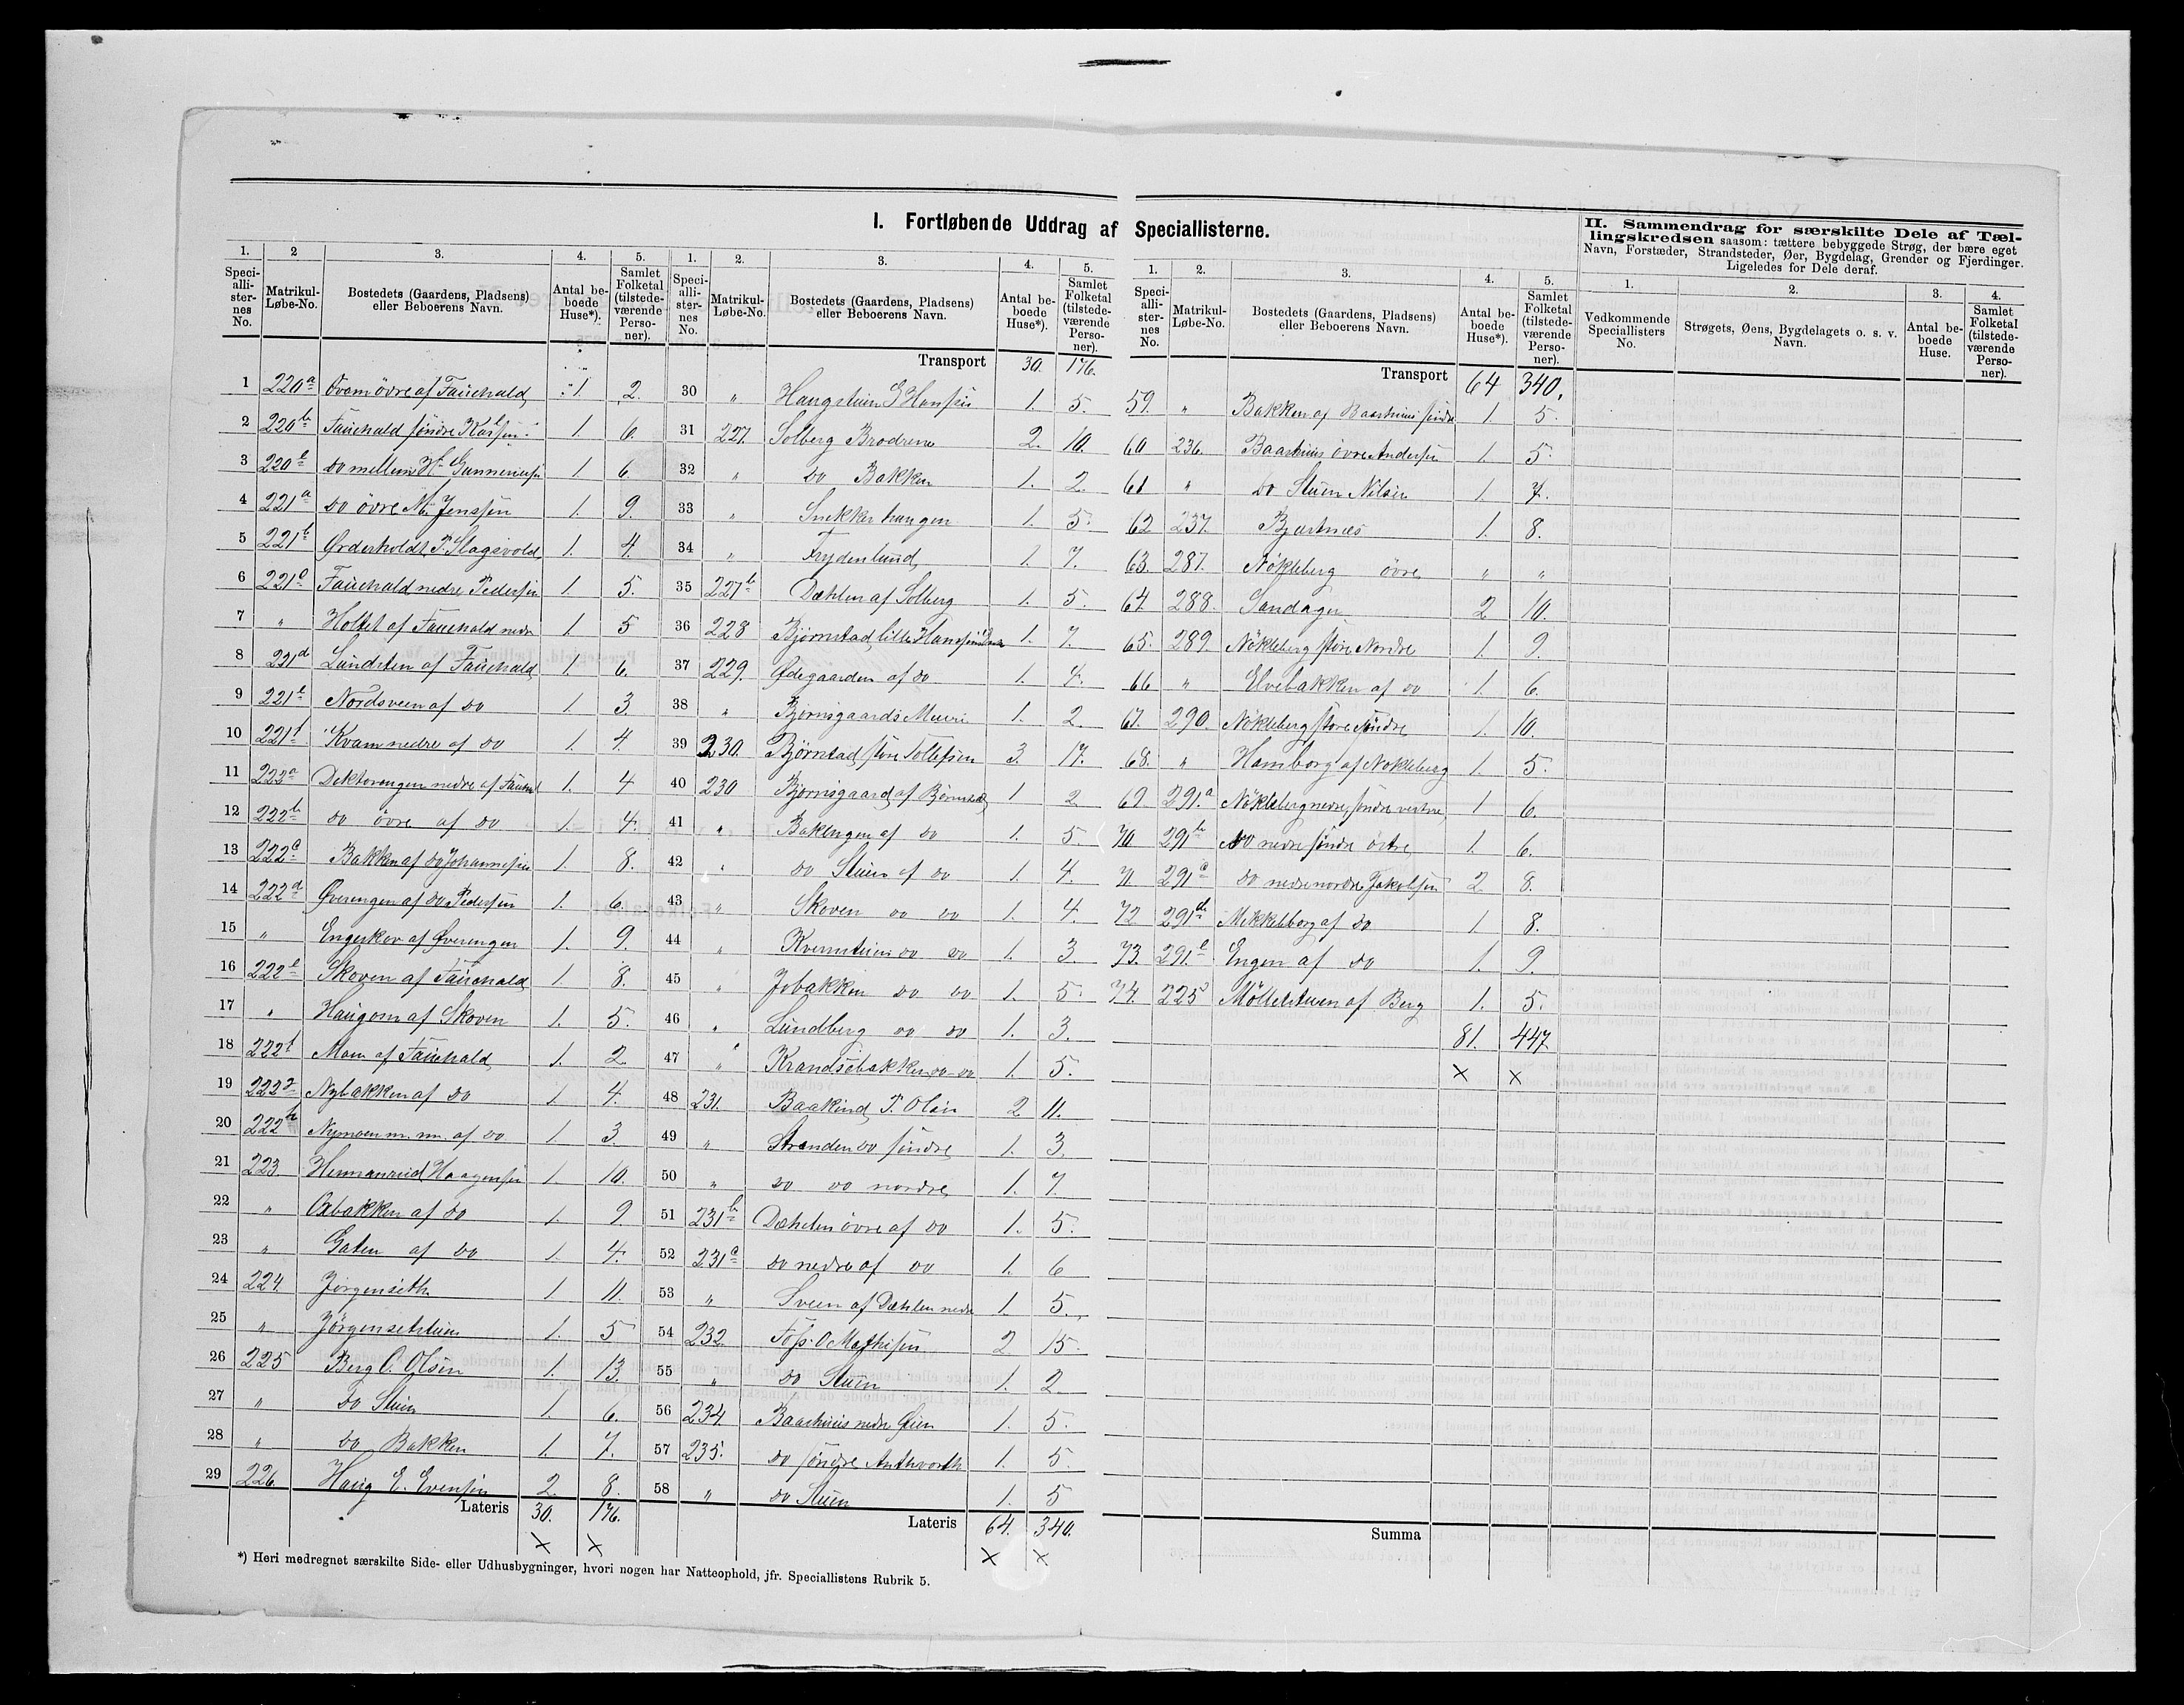 I. Fortløbende Uddrag af Speciallisterne.
1. 2 3. 4. 5.
Speciallisternes No. Matrikul-Løbe-No. Bostedets (Gaardens, Pladsens) eller Beboerens Navn. Antal beboede Huse*). Samlet Folketal (tilstedeværende Personer).
1 220a Övam övre af Fauchald 1 2.
2 220b Fauchald söndre 1. 6.
3 220c do mellem Gunneriusen 1. 6
4 221a do övre M. Jenssen 1. 9.
5 221b Ørderholdt P. Slagsvold 1. 4.
6 221c Fauchald nedre Pedersen 1. 5.
7 " Holtet af Fauchald nedr 1. 5
8 221d Lundsten af Fauchald 1. 6.
9 221e Nordsveen af do 1. 3.
10 221f Kvam nedre af do 1. 4.
11 222a Doktorengen nedre af 1. 4
12 222b do övre af do 1. 4.
13 222c Bakken af do Johannesen 1. 8.
14 222d Øverengen af do Pedersen 1. 6.
15 " Engeskov af Øverengen 1. 9.
16 222e Skoven af Fauchald 1. 8.
17 " Haugom af Skoven 1. 5.
18 222f Moen af Fauchald 1. 2
19 222g Nybakken af do 1. 4.
20 222h Nymoen m. m. af do 1. 3.
21 223 Hermanrud Haagensen 1. 10.
22 " Oxbakken af do 1. 9
23 " Gaten af do 1. 4.
24 224. Jörgenseth 1 11.
25 " Jörgensetstuen 1. 5
26 225 Berg O. Olsen 1. 13.
27 " do Stuen 1. 6.
28 " do Bakken 1. 7.
29 226. Haug E. Evensen 2. 8.
Lateris 30. 176.
× ×
*) Heri medregnet særskilte Side- eller Udhusbygninger, hvori nogen har Natteophold, jfr. Speciallistens Rubrik 5.
1. 2. 3. 4. 5.
Speciallisternes No. Matrikul-Løbe-No. Bostedets (Gaardens, Pladsens) eller Beboerens Navn. Antal beboede Huse*). Samlet Folketal (tilstedeværende Personer).
Transport 30. 176.
30 " Haugstuen G Hansen 1. 5.
31 227. Solberg Brødrene 2. 10.
32 " do Bakken 1. 2.
33 " Snekkerhaugen 1. 5.
34 " Frydenlund 1. 7.
35 227b Dæhlen af Solberg 1. 5.
36 228 Björnstad lille 1. 7.
37 229. Ødegaarden af do 1. 4.
38 " Björnsgaards 1. 2.
39 230. Björnstad store Tollefsen 3. 17.
40 230 Björnsgaard af Björnstad 1 2
41 " Bakengen af do 1. 5
42 " do Stuen af do 1. 4.
43 " Skoven do do 1. 4.
44 " Kvernstuen do do 1. 3.
45 " Jobakken do do 1. 5.
46 " Lundberg do do 1. 3.
47 " Krandsebakken do do 1. 5.
48 231. Baakind P. Olsen 2 11.
49 " Stranden do söndre 1. 3.
50 " do do nordre 1. 7.
51 231b Dæhlen övre af do 1. 5.
52 231c do nedre af do 1. 6
53 " Sveen af Dæhlen nedre 1. 5.
54 232. Foss O Mathisen 2 15.
55 " do Stuen 1. 2
56 234. Baashuus nedre Øien 1. 5.
57 235. do söndre 1. 5.
58 " do Stuen 1. 5
Lateris 64. 340.
× ×
1. 2. 3. 4. 5.
Speciallisternes No. Matrikul-Løbe-No. Bostedets (Gaardens, Pladsens) eller Beboerens Navn. Antal beboede Huse*). Samlet Folketal (tilstedeværende Personer).
Transport 64 340.
59. " Bakken af Baashuus söndre 1. 5.
60 236. Baashuus övre Andersen 1. 5.
61 " do Stuen Nilsen 1 7.
62 237. Bjertnæs 1. 8.
63. 287. Nökleberg övre " "
64. 288. Sandager 2 10.
65. 289. Nökleberg store Nordre 1. 9.
66 " Elvebakken af do 1. 6.
67. 290. Nökleberg store Söndre 1. 10.
68. " Hamborg af Nökleberg 1. 5.
69 291.a Nökleberg nedre söndre vestre 1 6.
70 291b do nedre söndre östre 1. 6.
71 291c do nedre nordre Jakobsen 2 8.
72 291d Mikkelborg af do 1 8.
73. 291.e Engen af do 1. 9.
74. 225 Möllerstuen af Berg 1. 5.
81. 447
× ×
Summa
II. Sammendrag for særskilte Dele af Tællingskredsen saasom: tættere bebyggede Strøg, der bære eget Navn, Forstæder, Strandsteder, Øer, Bygdelag, Grender og Fjerdinger. Ligeledes for Dele deraf.
1. 2. 3. 4.
Vedkommende Speciallisters No. Strøgets, Øens, Bygdelagets o. s. v. Navn. Antal beboede Huse. Samlet Folketal (tilstedeværende Personer).